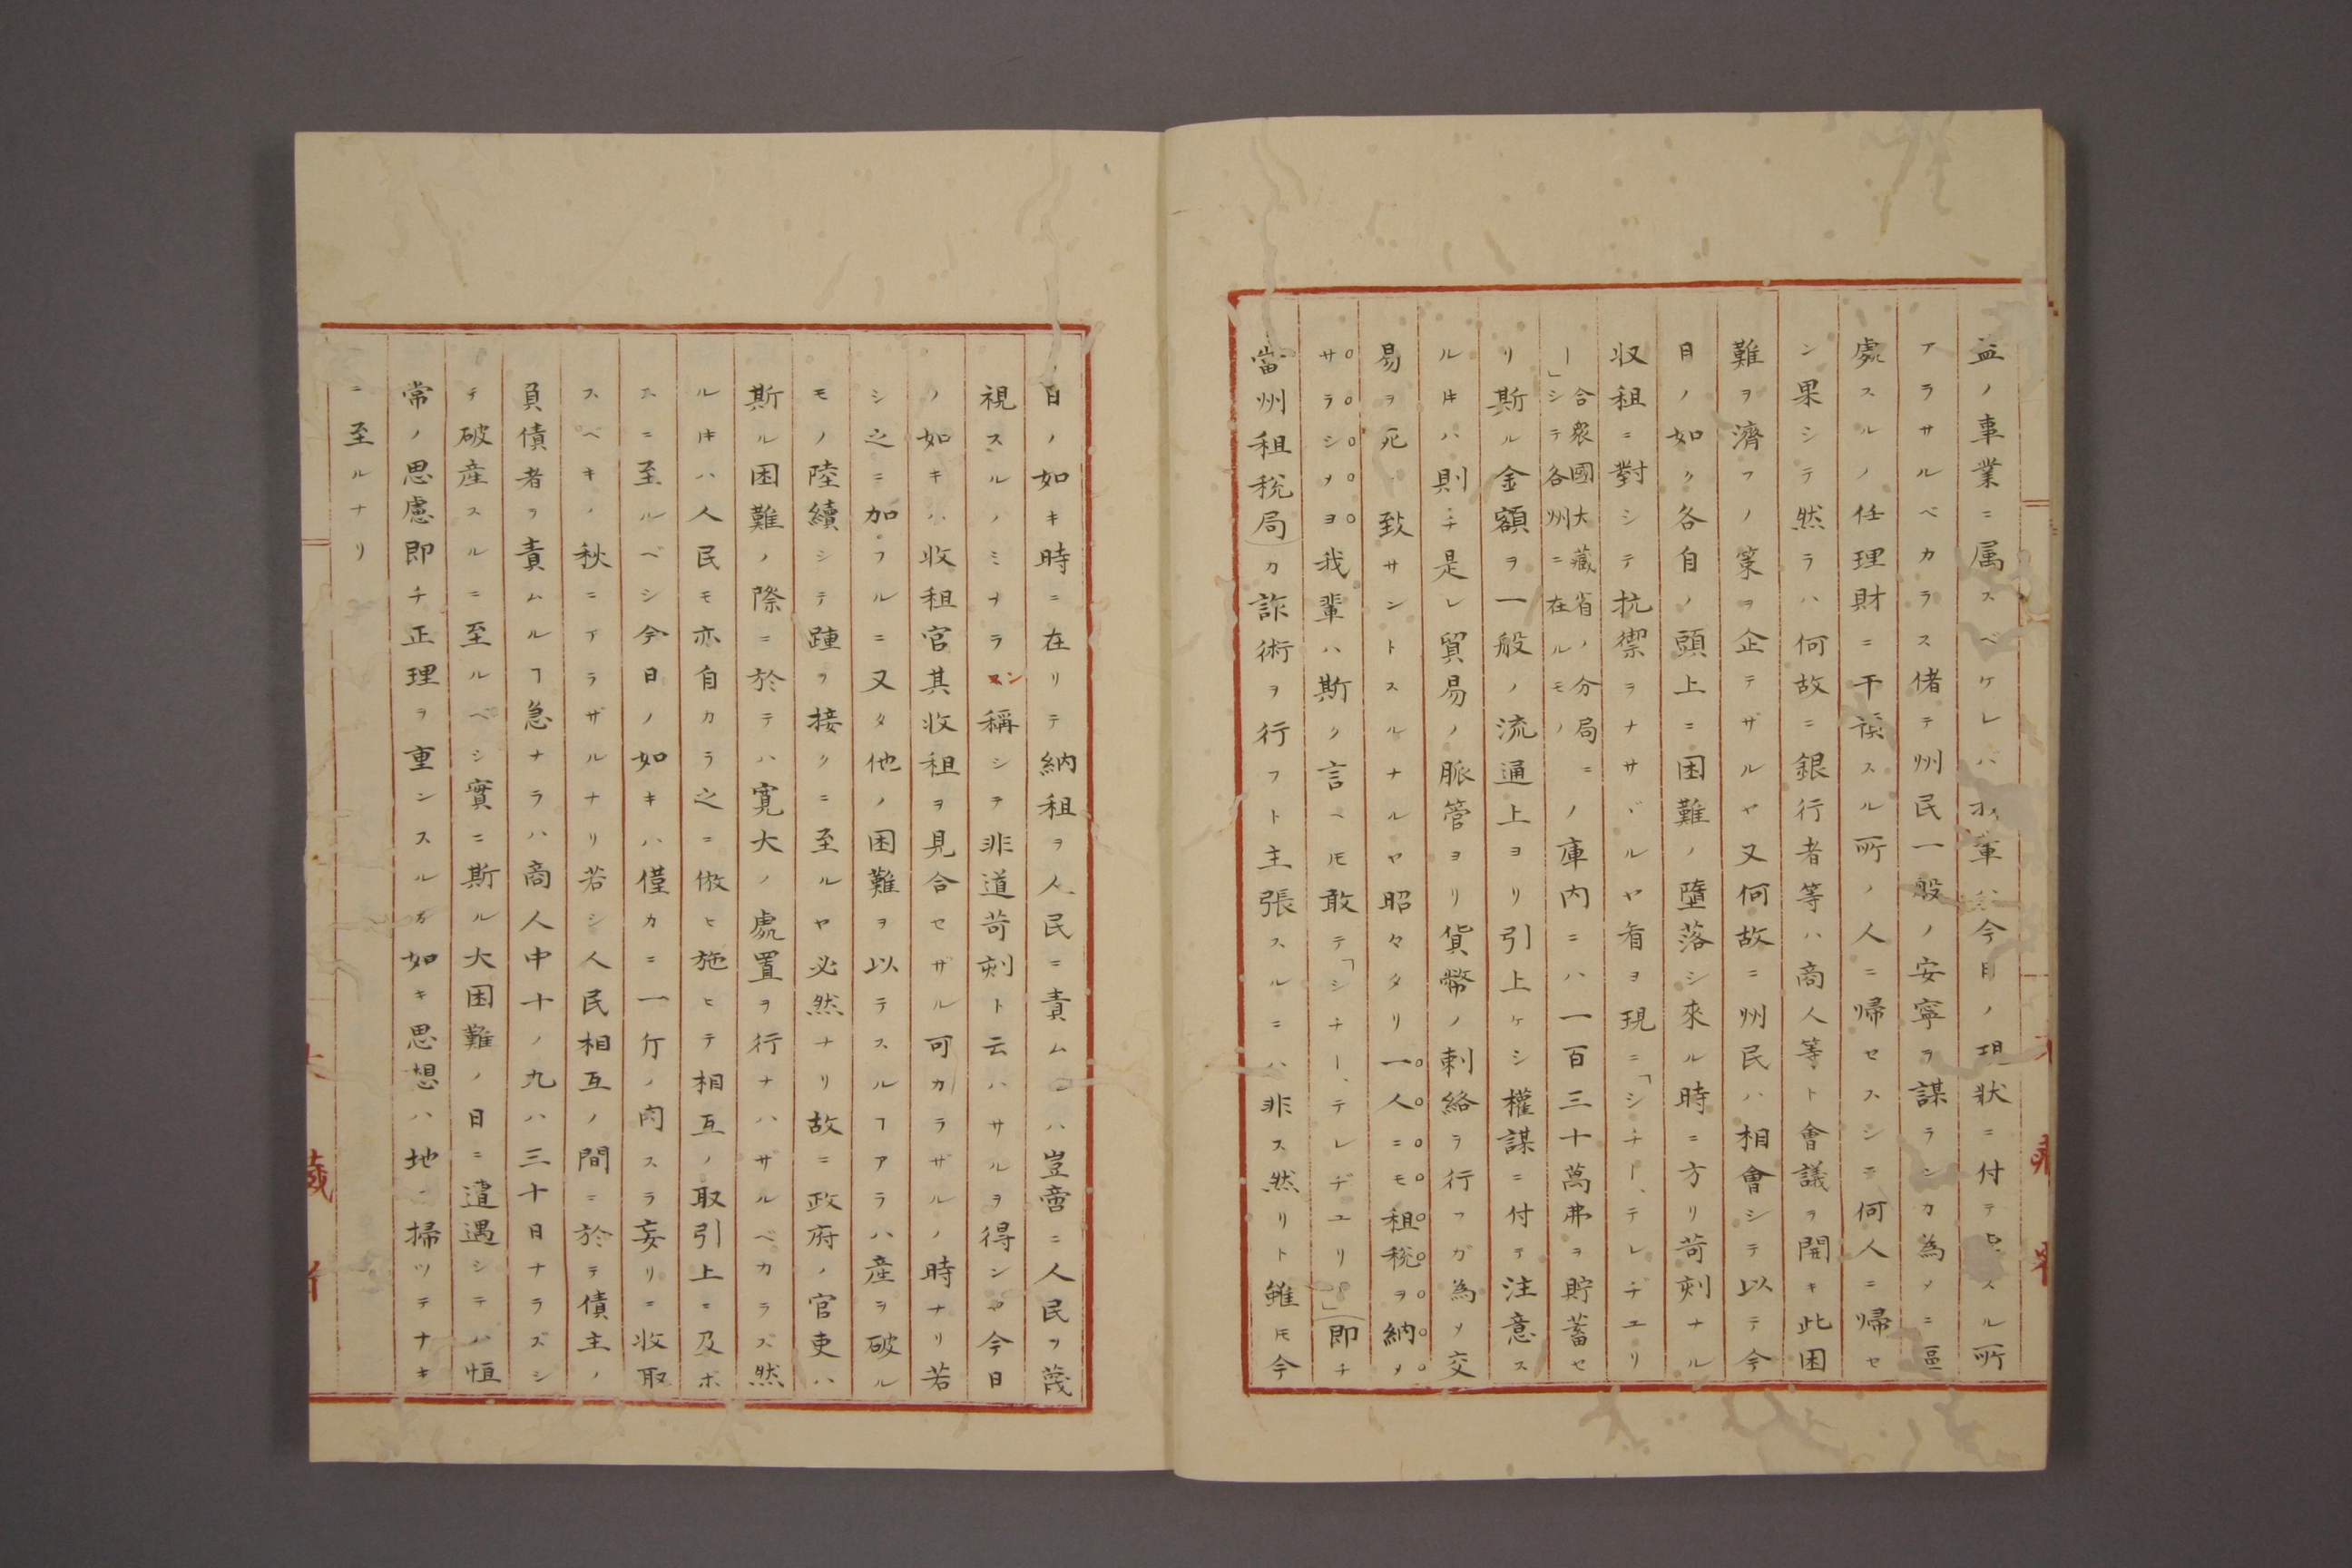 益ノ事業ニ属スベケレハ 今日ノ現状ニ付テ スル所
アラサルベカラス偖テ州民一般ノ安寧ヲ謀ランカ為メニ區
處スルノ任理財ニ干渉スル所ノ人ニ帰セスシテ何人ニ帰セ
ン果シテ然ラハ何故ニ銀行者等ハ商人等ト會議ヲ開キ此困
難ヲ濟フノ策ヲ企テザルヤ又何故ニ州民ハ相會シテ以テ今
日ノ如ク各自ノ頭上ニ困難ノ墮落シ來ル時ニ方リ苛刻ナル
収租ニ對シテ抗禦ヲナサヾルヤ看ヨ現ニ「シチー、テレヂユリ
ー」合衆國大藏省ノ分局ニシテ各州ニ在ルモノノ庫内ニハ一百三十萬弗ヲ貯蓄セ
リ斯ル金額ヲ一般ノ流通上ヨリ引上ケシ權謀ニ付テ注意ス
ルヰハ則チ是レ貿易ノ脈管ヨリ貨幣ノ刺絡ヲ行フガ為メ交
易ヲ死ニ致サントスルナルヤ昭々タリ一人ニモ租税ヲ納メ
サラシメヨ我輩ハ斯ク言ヘ𪜈敢テ「シチー、テレヂユリー」(即チ
當州租税局)カ詐術ヲ行フト主張スルニハ非ス然リト雖𪜈今
日ノ如キ時ニ在リテ納租ヲ人民ニ責ムルハ豈啻ニ人民ヲ蔑
視スルノミナランヌン稱シテ非道苛刻ト云ハサルヲ得ンヤ今日
ノ如キハ收租官其收租ヲ見合セザル可カラザルノ時ナリ若
シ之ニ加フルニ又タ他ノ困難ヲ以テスルヿアラハ産ヲ破ル
モノ陸續シテ踵ヲ接クニ至ルヤ必然ナリ故ニ政府ノ官吏ハ
斯ル困難ノ際ニ於テハ寛大ノ處置ヲ行ナハザルベカラズ然
ルヰハ人民モ亦自カラ之ニ倣ヒ施ヒテ相互ノ取引上ニ及ボ
スニ至ルベシ今日ノ如キハ僅カニ一斤ノ肉スラ妄リニ收取
スベキノ秋ニアラザルナリ若シ人民相互ノ間ニ於テ債主ノ
負債者ヲ責ムルヿ急ナラハ商人中十ノ九ハ三十日ナラズシ
テ破産スルニ至ルベシ實ニ斯ル大困難ノ日ニ遭遇シテハ恒
常ノ思慮即チ正理ヲ重ンスルガ如キ思想ハ地ニ掃ツテナキ
ニ至ルナリ